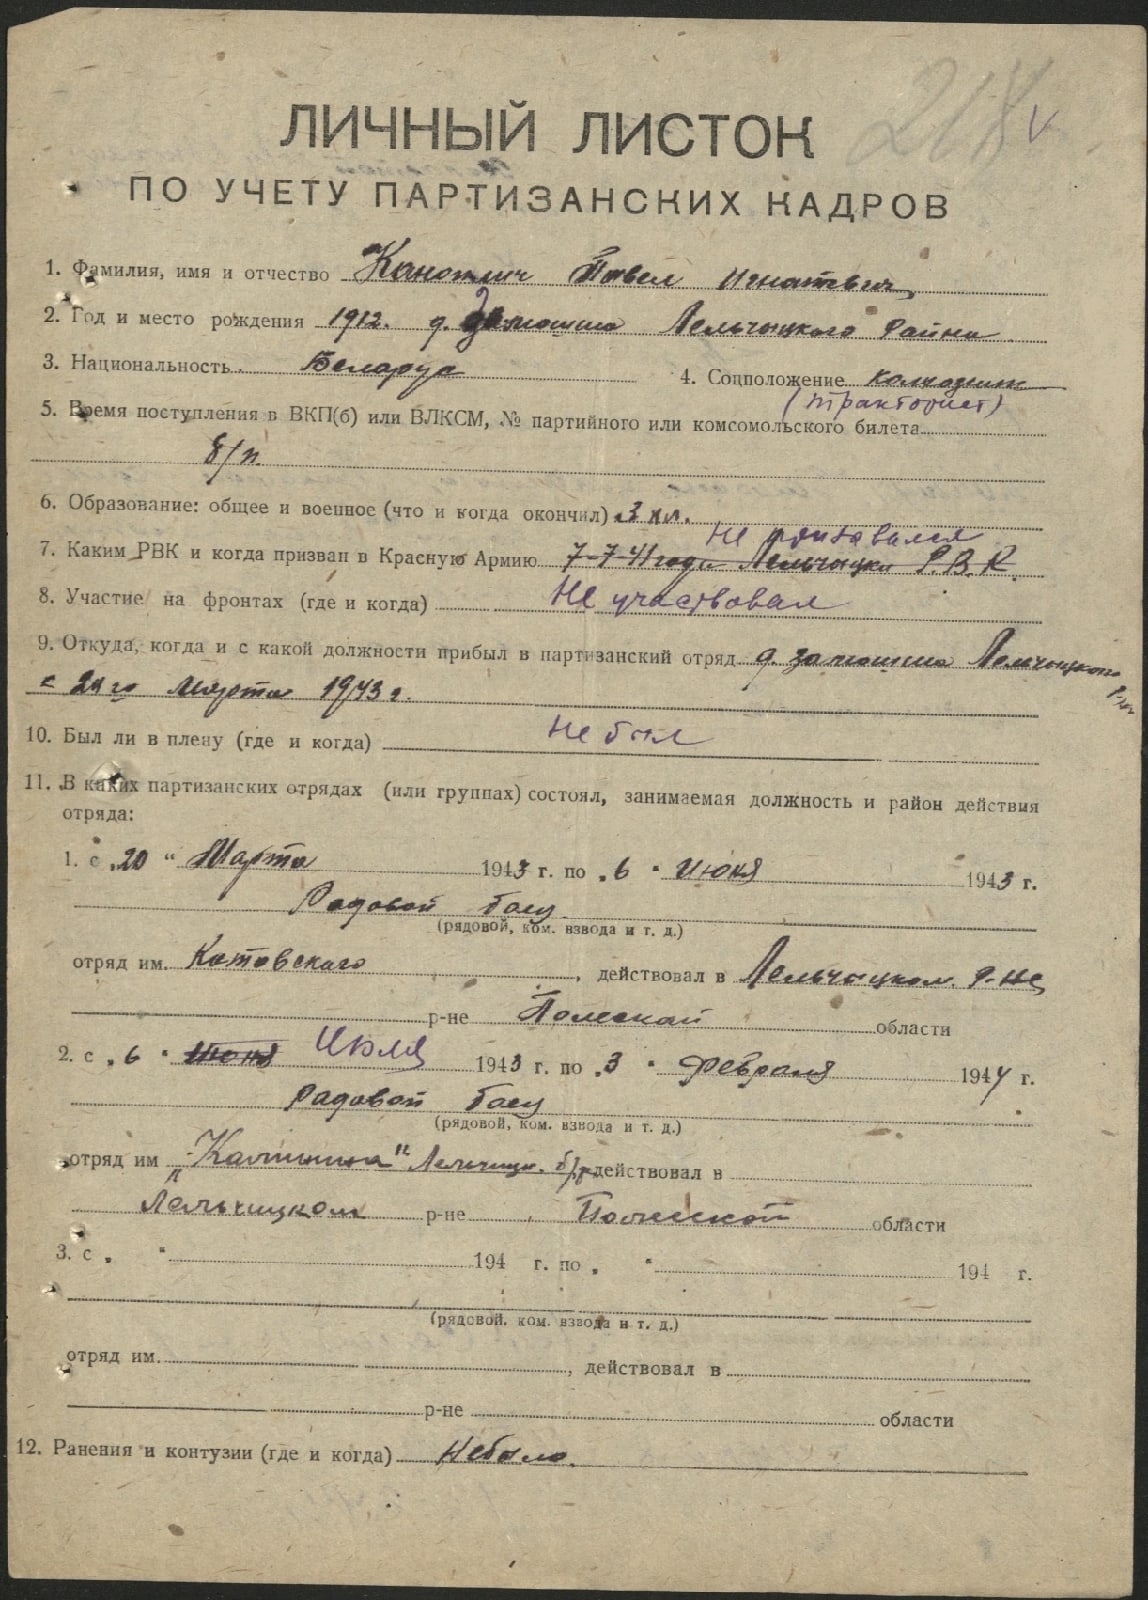 218 V
ЛИЧНЫЙ ЛИСТОК
ПО УЧЕТУ ПАРТИЗАНСКИХ КАДРОВ
1. Фамилия, имя и отчество Павел Игнатвич
2. Год и место рождения 1912. д. Лельчыцкого Района
3. Национальность Беларус 4. Соцположение колхозник
(тракторист)
5. Время поступления в ВКП(б) или ВЛКСМ, № партийного или комсомольского билета
б/п.
6. Образование: общее и военное (что и когда окончил) 3 кл.
Не призовался
7. Каким РВК и когда призван в Красную Армию 7-7-41 года Лельчыцки Р.В.К.
8. Участие на фронтах (где и когда) Не участвовал
9. Откуда, когда и с какой должности прибыл в партизанский отряд д. замошша Лельчыцкого
р-на
с 20го Марта 1943 г.
10. Был ли в плену (где и когда) Не был
11. В каких партизанских отрядах (или группах) состоял, занимаемая должность и район действия
отряда:
1. с „20" Марта 1943 г. по „6" Июня 1943 г.
Радовой боец
(рядовой, ком. взвода и т. д.)
отряд им. Котовского, действовал в Лельчыцком Р-не
р-не Полеской области
2. с „6" Июня Июля 1943 г. по „3" февраля 1944 г.
Радовой боец
(рядовой, ком. взвода и т. д.)
отряд им „Калинина" Лельчицк. бр. действовал в
Лельчицком р-не Полеской области
3. с „ " 194 г. по „ " 194 г.
(рядовой. ком. взвода и т. д.)
отряд им. , действовал в
р-не области
12. Ранения и контузии (где и когда) Небыло.